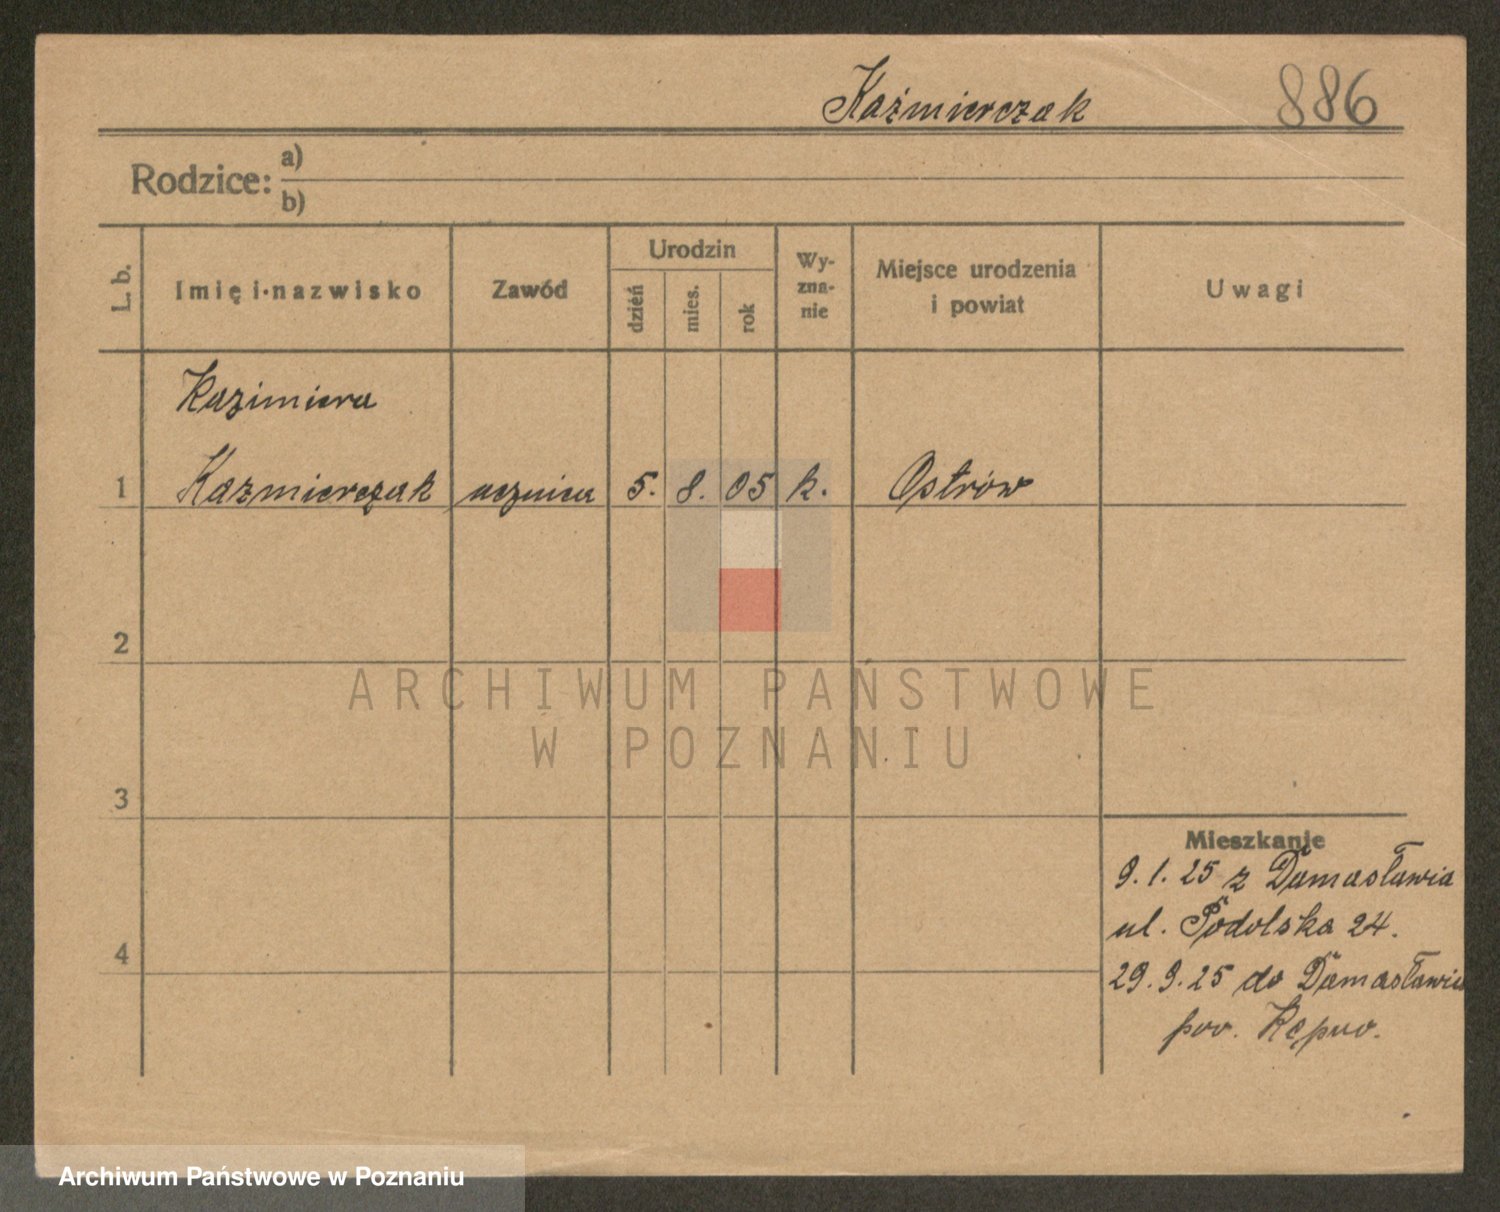 Kaźmierczak 886
Rodzice: a)
b)
L. b. Imię i nazwisko Zawód Urodzin dzień mies. rok Wy-zna-nie Miejsce urodzenia i powiat Uwagi
Kazimiera
1 Kaźmierczak ucznica 5. 8. 05 k. Ostrów
2
ARCHIWUM PAŃSTWOWE
W POZNANIU
3
Mieszkanie
9. 1. 25 z Damasławia
ul. Podolska 24.
4
29. 9. 25 do Damasławia
pow. Kępno.
Archiwum Państwowe w Poznaniu